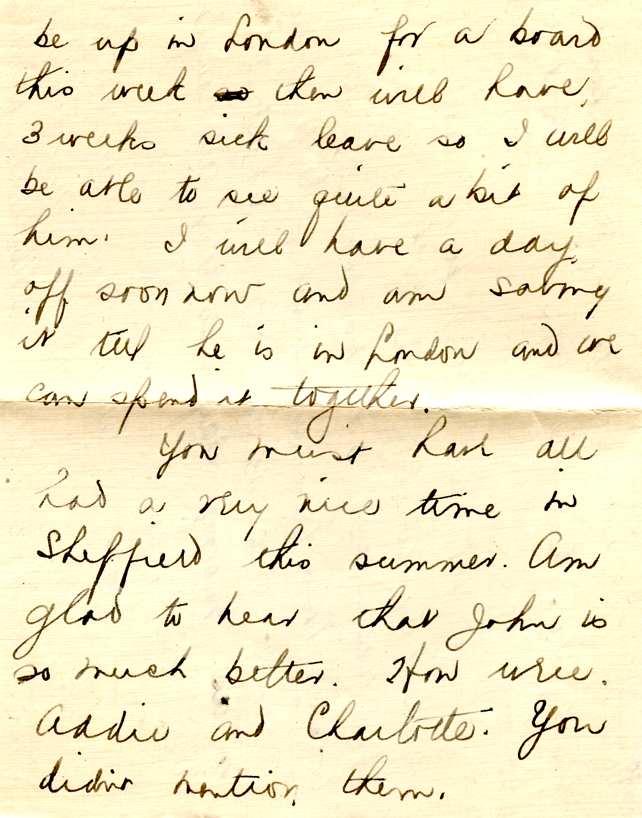 be up in London for a board
this week so then will have
3 weeks sick leave so I will
be able to see quite a bit of
him. I will have a day
off soon now and am saving
it till he is in London and we
can spend it together.
You must have all
had a very nice time in
Sheffield this summer. Am
glad to hear that John is
so much better. How
Addie and Charlotte. You
didn't mention them.